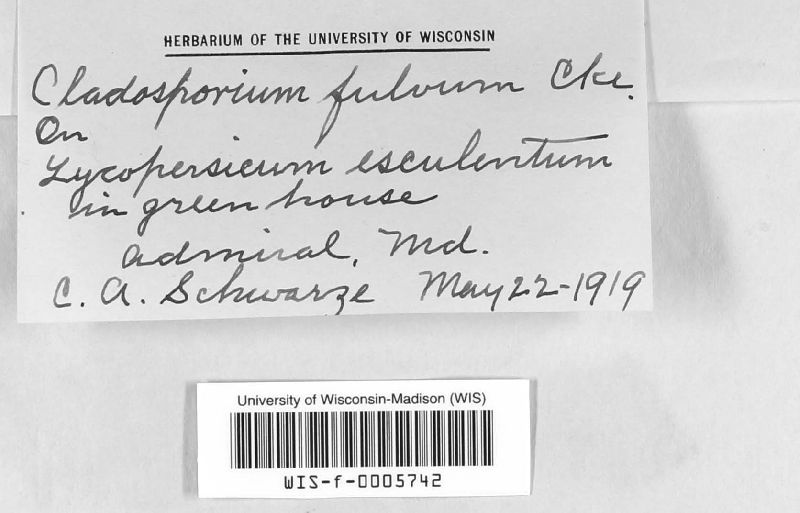 HERBARIUM OF THE UNIVERSITY OF WISCONSIN
Cladosporium fulvum Cke.
On
Lycopersicum esculentum
in green house
Admiral, Md.
C. A. Schwarze May 22-1919
University of Wisconsin-Madison (WIS)
WIS-f-0005742